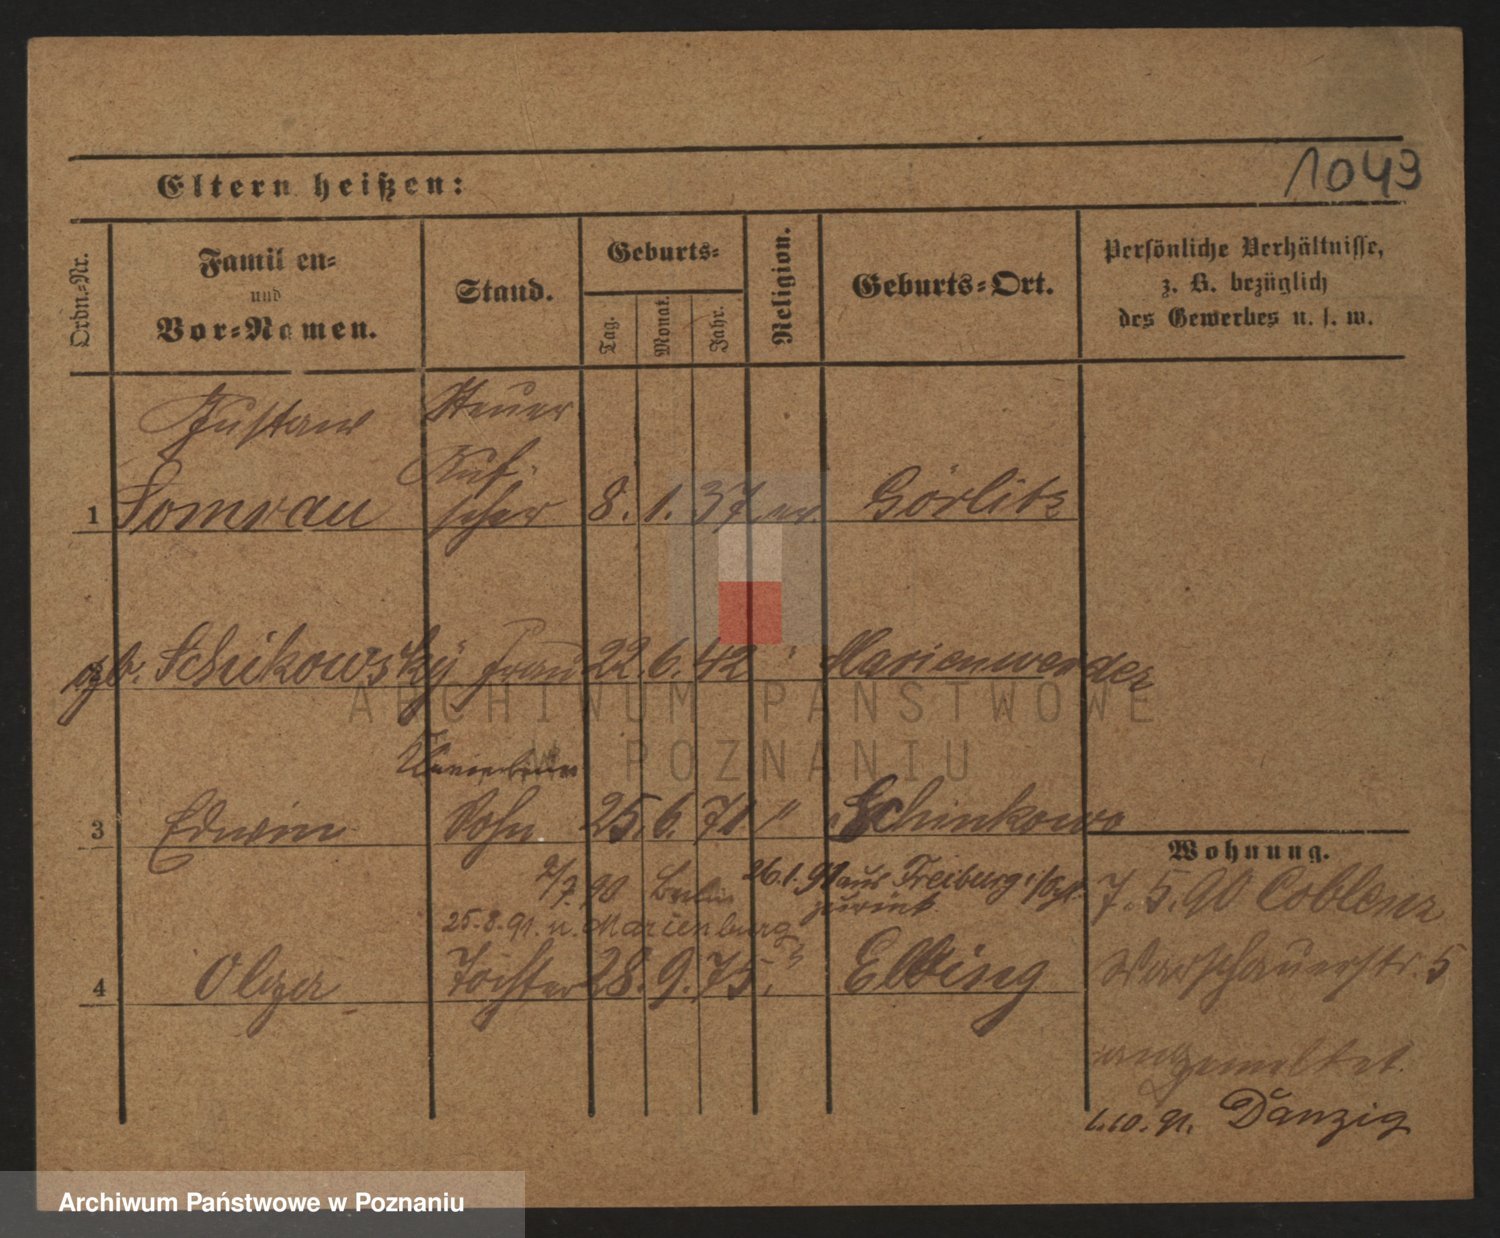 1049
Eltern heißen:
Ordn.-Nr.
Familien-
und
Vor-Namen.
Stand.
Geburts-
Tag.
Monat.
Jahr.
Religion.
Geburts-Ort.
Persönliche Verhältnisse,
z. B. bezüglich
des Gewerbes u. s. w.
Gustaw
Steuer
Auf-
1 Somrau seher 8. 1. 37 ev. Görlitz
gb. Schikowsky Frau 22. 6. 42 " Marienwerder
3 Edwin Sohn 25. 6. 71 " Schinkowo
Wohnung.
2/7 90 Berlin 26.1.91 aus Freiburg zurück
7. 5. 90 Coblenz
25.8.91. n. Marienburg
4 Olga Tochter 28. 9. 75. " Elbing
Warschauerstr. 5
angemeldet.
1.10.91. Danzig
ARCHIWUM PAŃSTWOWE
W POZNANIU
Archiwum Państwowe w Poznaniu